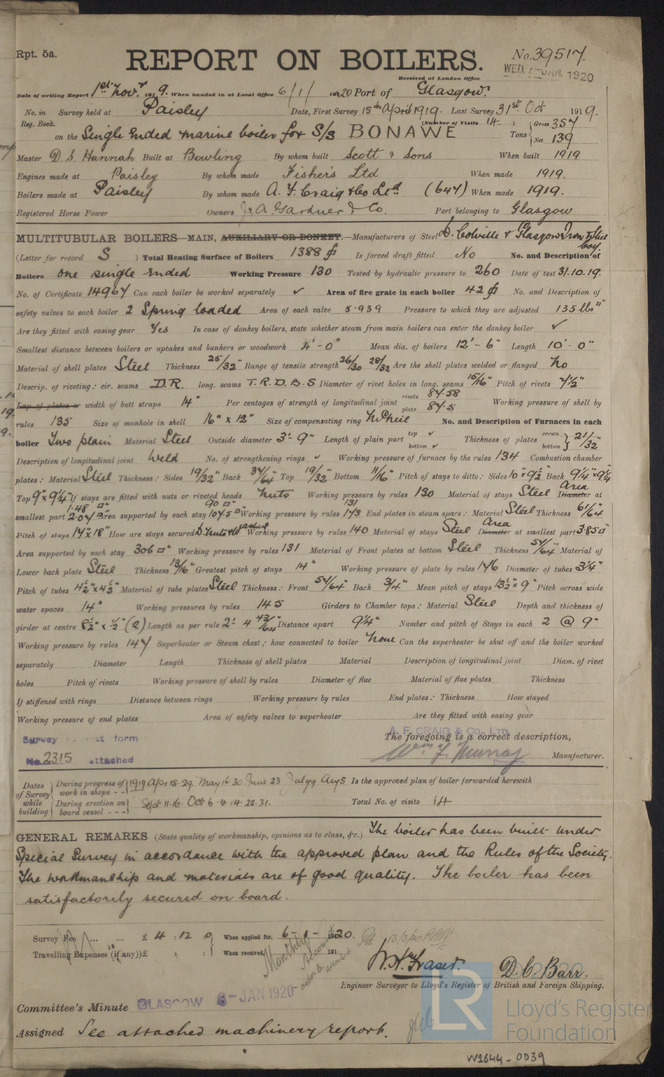 Rpt. 5a.
REPORT ON BOILERS.
No. 39517
Received at London Office
WED. 1920
Date of writing Report 1st Nov. 1919. When handed in at Local Office 6/1/1920 Port of Glasgow.
No. in Survey held at Paisley Date, First Survey 15th April 1919. Last Survey 31st Oct 1919.
Reg. Book. (Number of Visits 14)
on the Single Ended marine boiler for S/S BONAWE Tons Gross 357
Net 139
Master D. S. Hannah Built at Bowling By whom built Scott & Sons When built 1919
Engines made at Paisley By whom made Fishers Ltd When made 1919.
Boilers made at Paisley By whom made A. F. Craig & Co Ltd (647) When made 1919.
Registered Horse Power Owners J. & A. Gardner & Co. Port belonging to Glasgow
MULTITUBULAR BOILERS—MAIN, AUXILIARY OR DONKEY.—Manufacturers of Steel D. Colville & Glasgow Iron & Steel Coy.
(Letter for record S) Total Heating Surface of Boilers 1388 Is forced draft fitted No No. and Description of
Boilers one single ended Working Pressure 130 Tested by hydraulic pressure to 260 Date of test 31.10.19.
No. of Certificate 14967 Can each boiler be worked separately ✓ Area of fire grate in each boiler 42 No. and Description of
safety valves to each boiler 2 Spring loaded Area of each valve 5.939 Pressure to which they are adjusted 135 lbs
Are they fitted with easing gear Yes In case of donkey boilers, state whether steam from main boilers can enter the donkey boiler ✓
Smallest distance between boilers or uptakes and bunkers or woodwork Mean dia. of boilers 12'-6" Length 10'-0"
Material of shell plates Steel Thickness 25/32" Range of tensile strength 26/30 28/32 Are the shell plates welded or flanged No
Descrip. of riveting: cir. seams D.R. long. seams T.R.D.B.S Diameter of rivet holes in long. seams 15/16" Pitch of rivets
Lap of plates or width of butt straps 14" Per centages of strength of longitudinal joint rivets 87.58 plate 87.5 Working pressure of shell by
rules 135 Size of manhole in shell 16" x 12" Size of compensating ring McNeil No. and Description of Furnaces in each
boiler Two plain Material Steel Outside diameter 3'-9" Length of plain part top ✓ bottom ✓ Thickness of plates crown bottom 21/32
Description of longitudinal joint Weld No. of strengthening rings ✓ Working pressure of furnace by the rules 134 Combustion chamber
plates: Material Steel Thickness: Sides 19/32" Back 34/64 Top 19/32 Bottom 11/16" Pitch of stays to ditto: Sides 10" x 9½ Back 9¼" x 9¼
Top 9" x 9¼" If stays are fitted with nuts or riveted heads Nuts Working pressure by rules 130 Material of stays Steel Area Diameter at
smallest part Area supported by each stay Working pressure by rules End plates in steam space: Material Steel Thickness 61/64
Pitch of stays 17" x 18" How are stays secured Working pressure by rules 140 Material of stays Steel Area Diameter at smallest part
Area supported by each stay 306 Working pressure by rules 131 Material of Front plates at bottom Steel Thickness 54/64 Material of
Lower back plate Steel Thickness 13/16" Greatest pitch of stays 14" Working pressure of plate by rules 146 Diameter of tubes 3¼"
Pitch of tubes 4½" x 4½" Material of tube plates Steel Thickness: Front 54/64" Back 3/4" Mean pitch of stays 13½ x 9" Pitch across wide
water spaces 14" Working pressures by rules 145 Girders to Chamber tops: Material Steel Depth and thickness of
girder at centre 8½" x ½" (2) Length as per rule Distance apart 9¼" Number and pitch of Stays in each 2 @ 9"
Working pressure by rules 147 Superheater or Steam chest; how connected to boiler None Can the superheater be shut off and the boiler worked
separately Diameter Length Thickness of shell plates Material Description of longitudinal joint Diam. of rivet
holes Pitch of rivets Working pressure of shell by rules Diameter of flue Material of flue plates Thickness
If stiffened with rings Distance between rings Working pressure by rules End plates: Thickness How stayed
Working pressure of end plates Area of safety valves to superheater Are they fitted with easing gear
Survey form
No. 2315 attached
A. F. CRAIG & CO., LTD.
The foregoing is a correct description,
Wm. F. Murray Manufacturer.
Dates of Survey while building
During progress of work in shops - - 1919 Apr 15. 29. May 16. 30 June 23 Aug 5 Is the approved plan of boiler forwarded herewith
During erection on board vessel - - - Sept 11. 16. Oct 6. 14. 22. 31. Total No. of visits 14
GENERAL REMARKS (State quality of workmanship, opinions as to class, &c.) The boiler has been built under
Special Survey in accordance with the approved plan and the Rules of the Society.
The workmanship and materials are of good quality. The boiler has been
satisfactorily secured on board.
Survey Fee ... ... £ 4 : 12 : 0 When applied for, 6-1-1920.
Travelling Expenses (if any) £ When received, 191
Monthly Account
Fraser. D. C. Barr.
Engineer Surveyor to Lloyd's Register of British and Foreign Shipping.
Committee's Minute GLASGOW 6-JAN 1920
Assigned See attached machinery report.
LR Lloyd's Register Foundation
W1644-0039